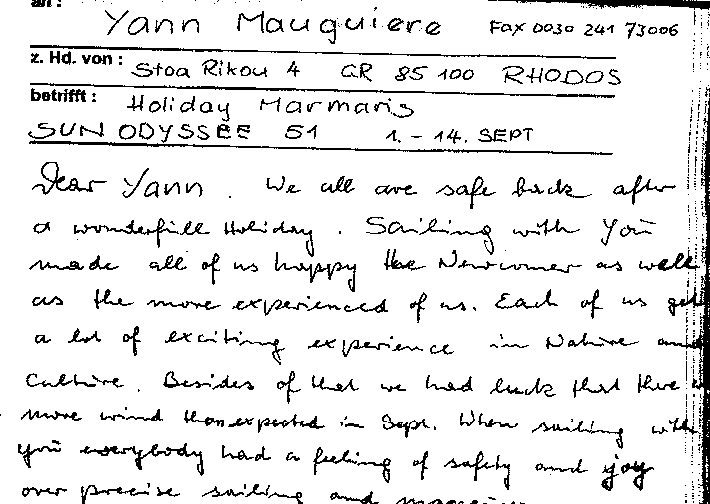 an :
Yann Mauguiere FAX 0030 241 73006
z. Hd. von : Stoa Rikou 4 GR 85 100 RHODOS
betrifft : Holiday Marmaris
SUN ODYSSEE 51 1. - 14. SEPT
Dear Yann. We all are safe back after
a wonderfull Holiday. Sailing with You
made all of us happy the Newcomer as well
as the more experienced of us. Each of us get
a lot of exciting experience in Nature and
Culture. Besides of that we had luck that there
more wind than expected in Sept. When sailing with
you everybody had a feeling of safety and joy
over precise sailing and